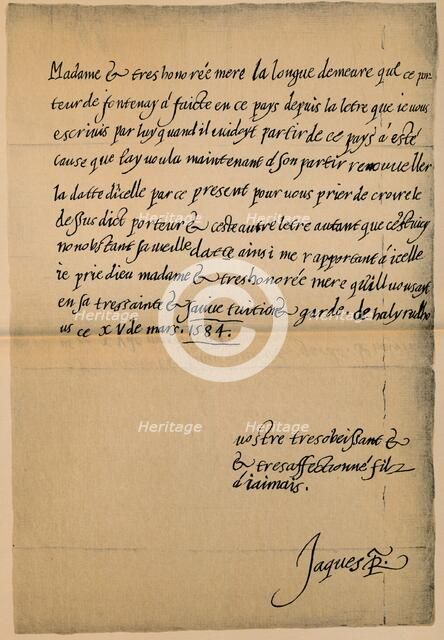 Madame & treshonorée mere la longue demeure que ce por
teur de fontenay á faicte en ce pays depuis la letre que ie vous
escriuis par luy quand il cuidoyt partir de ce pays á esté
cause que iay voulu maintenant a son partir renouueller
la datte dicelle par ce present pour vous prier de croire le
dessusdict porteur & ceste autre letre autant que
nonobstant sa vieille datte ainsi me rapportant á icelle
ie prie dieu madame & treshonorée mere quíl vous ayt
en sa tressainte & sauue tuition & garde. de halyrudho
us ce xv de mars. 1584.
vostre tresobeissant &
& tresaffectionné filz
a iaimais.
Jaques R.
Heritage Heritage Heritage
Heritage
Heritage Heritage Heritage
Heritage
Heritage Heritage Heritage